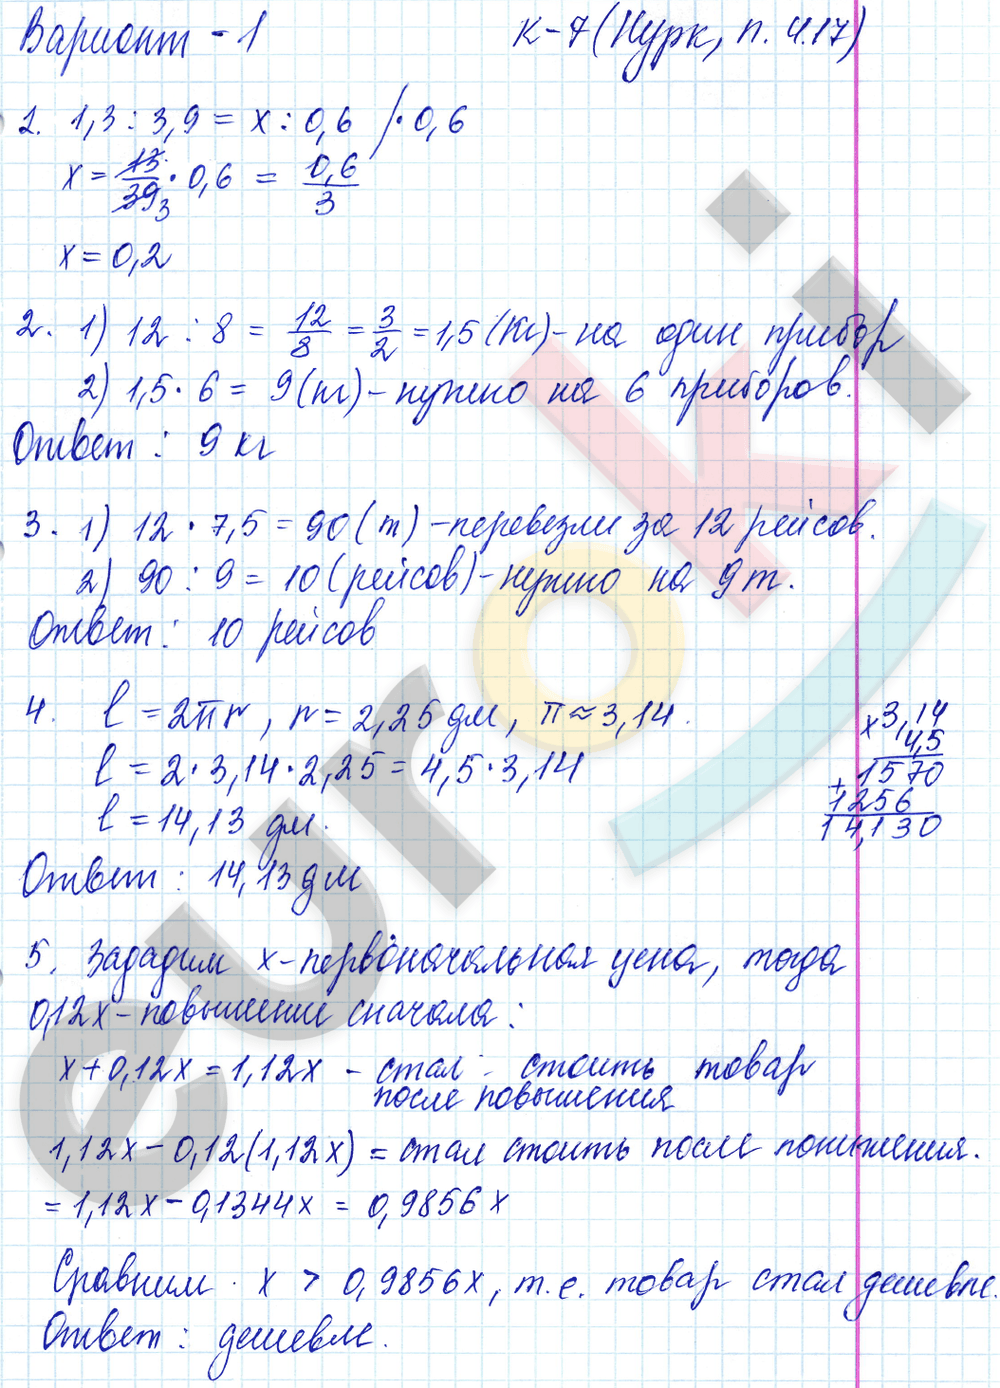 Вариант - 1 К-7 (Нурк, п. 4.17)
1. 1,3 : 3,9 = x : 0,6 / · 0,6
x = 13/39 3 · 0,6 = 0,6/3
x = 0,2
2. 1) 12 : 8 = 12/8 = 3/2 = 1,5 (кг) - на один прибор
2) 1,5 · 6 = 9 (кг) - нужно на 6 приборов.
Ответ : 9 кг
3. 1) 12 · 7,5 = 90 (т) - перевезли за 12 рейсов.
2) 90 : 9 = 10 (рейсов) - нужно на 9 т.
Ответ : 10 рейсов
4. l = 2πr, r = 2,25 дм, π ≈ 3,14.
l = 2 · 3,14 · 2,25 = 4,5 · 3,14
l = 14,13 дм.
Ответ : 14,13 дм
x 3,14
4,5
1570
+
1256
14,130
5. Зададим x - первоначальная цена, тогда
0,12x - повышение сначала :
x + 0,12x = 1,12x - стал стоить товар
после повышения
1,12x - 0,12(1,12x) = стал стоить после понижения.
= 1,12x - 0,1344x = 0,9856x
Сравним x > 0,9856x, т.е. товар стал дешевле.
Ответ : дешевле.
euroki